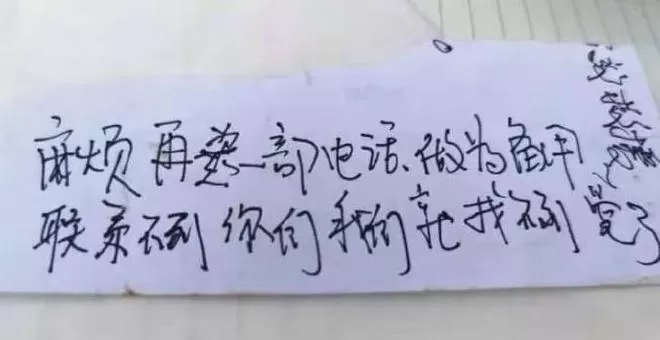 麻烦再一部电话、做为备用
联系不到你们我们就找不到党了